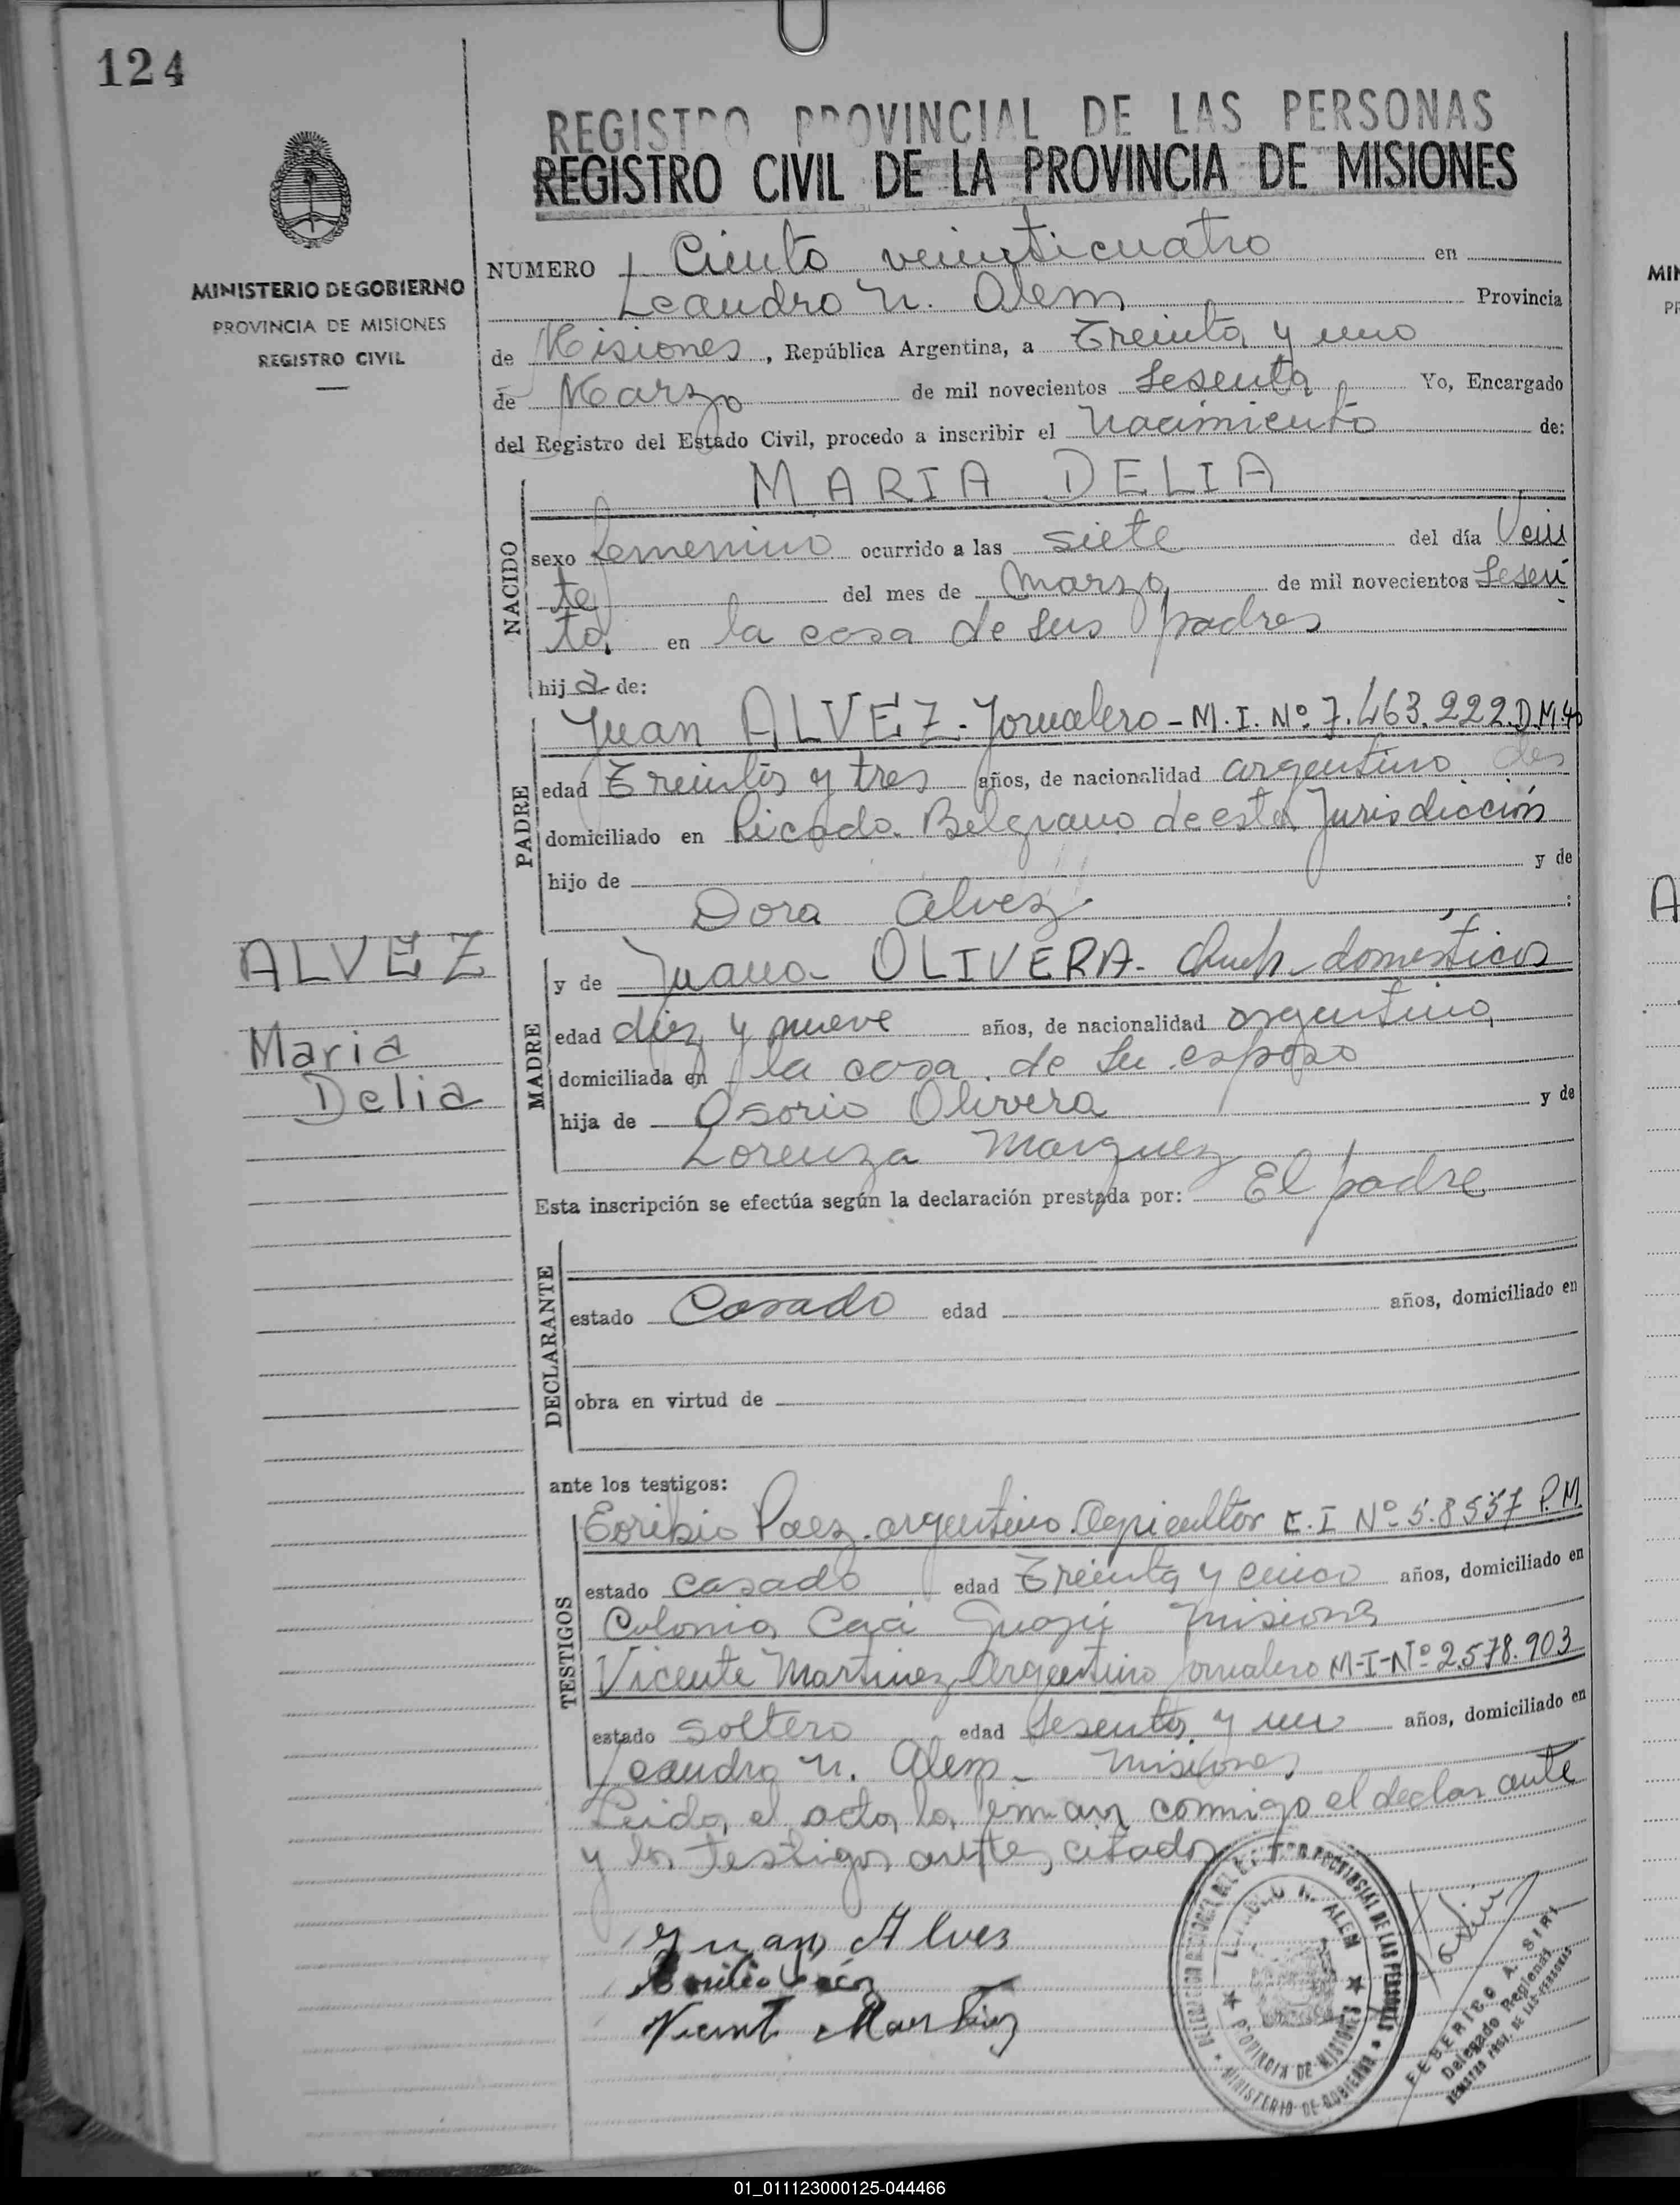 124
REGISTRO PROVINCIAL DE LAS PERSONAS
REGISTRO CIVIL DE LA PROVINCIA DE MISIONES
MINISTERIO DE GOBIERNO
PROVINCIA DE MISIONES
REGISTRO CIVIL
NUMERO Ciento veinticuatro en
Leandro N. Alem Provincia
de Misiones, República Argentina, a Treinta y uno
de Marzo de mil novecientos Sesenta Yo, Encargado
del Registro del Estado Civil, procedo a inscribir el Nacimiento de:
MARIA DELIA
NACIDO
sexo femenino ocurrido a las siete del día Vein
te del mes de Marzo de mil novecientos Sesen
ta en la casa de sus padres
hija de:
PADRE
Juan ALVEZ - Jornalero - M.I. Nº 7.463.222 D.M.40
edad Treinta y tres años, de nacionalidad argentino
domiciliado en Picada Belgrano de esta Jurisdicción
hijo de y de
Dora Alvez
ALVEZ
Maria
Delia
MADRE
y de Juana OLIVERA - domésticos
edad diez y nueve años, de nacionalidad argentina
domiciliada en la casa de su esposo
hija de Osorio Olivera y de
Lorenza Marquez
Esta inscripción se efectúa según la declaración prestada por: El padre
DECLARANTE
estado Casado edad años, domiciliado en
obra en virtud de
ante los testigos:
TESTIGOS
Paez argentino Agricultor C.I Nº 5.8557 P.M
estado casado edad Treinta y cinco años, domiciliado en
Colonia Caá Guazú Misiones
Vicente Martinez Argentino jornalero M-I-Nº 2.578.903
estado soltero edad Sesenta y un años, domiciliado en
Leandro N. Alem - Misiones
Leida el acta la firman conmigo el declarante
y los testigos antes citados
Juan Alves
Vicent Martinez
LEANDRO N. ALEM
PROVINCIA DE MISIONES
MINISTERIO DE GOBIERNO
FEDERICO A. SIRI
Delegado Regional
REGISTRO PROV. DE LAS PERSONAS
01_011123000125-044466